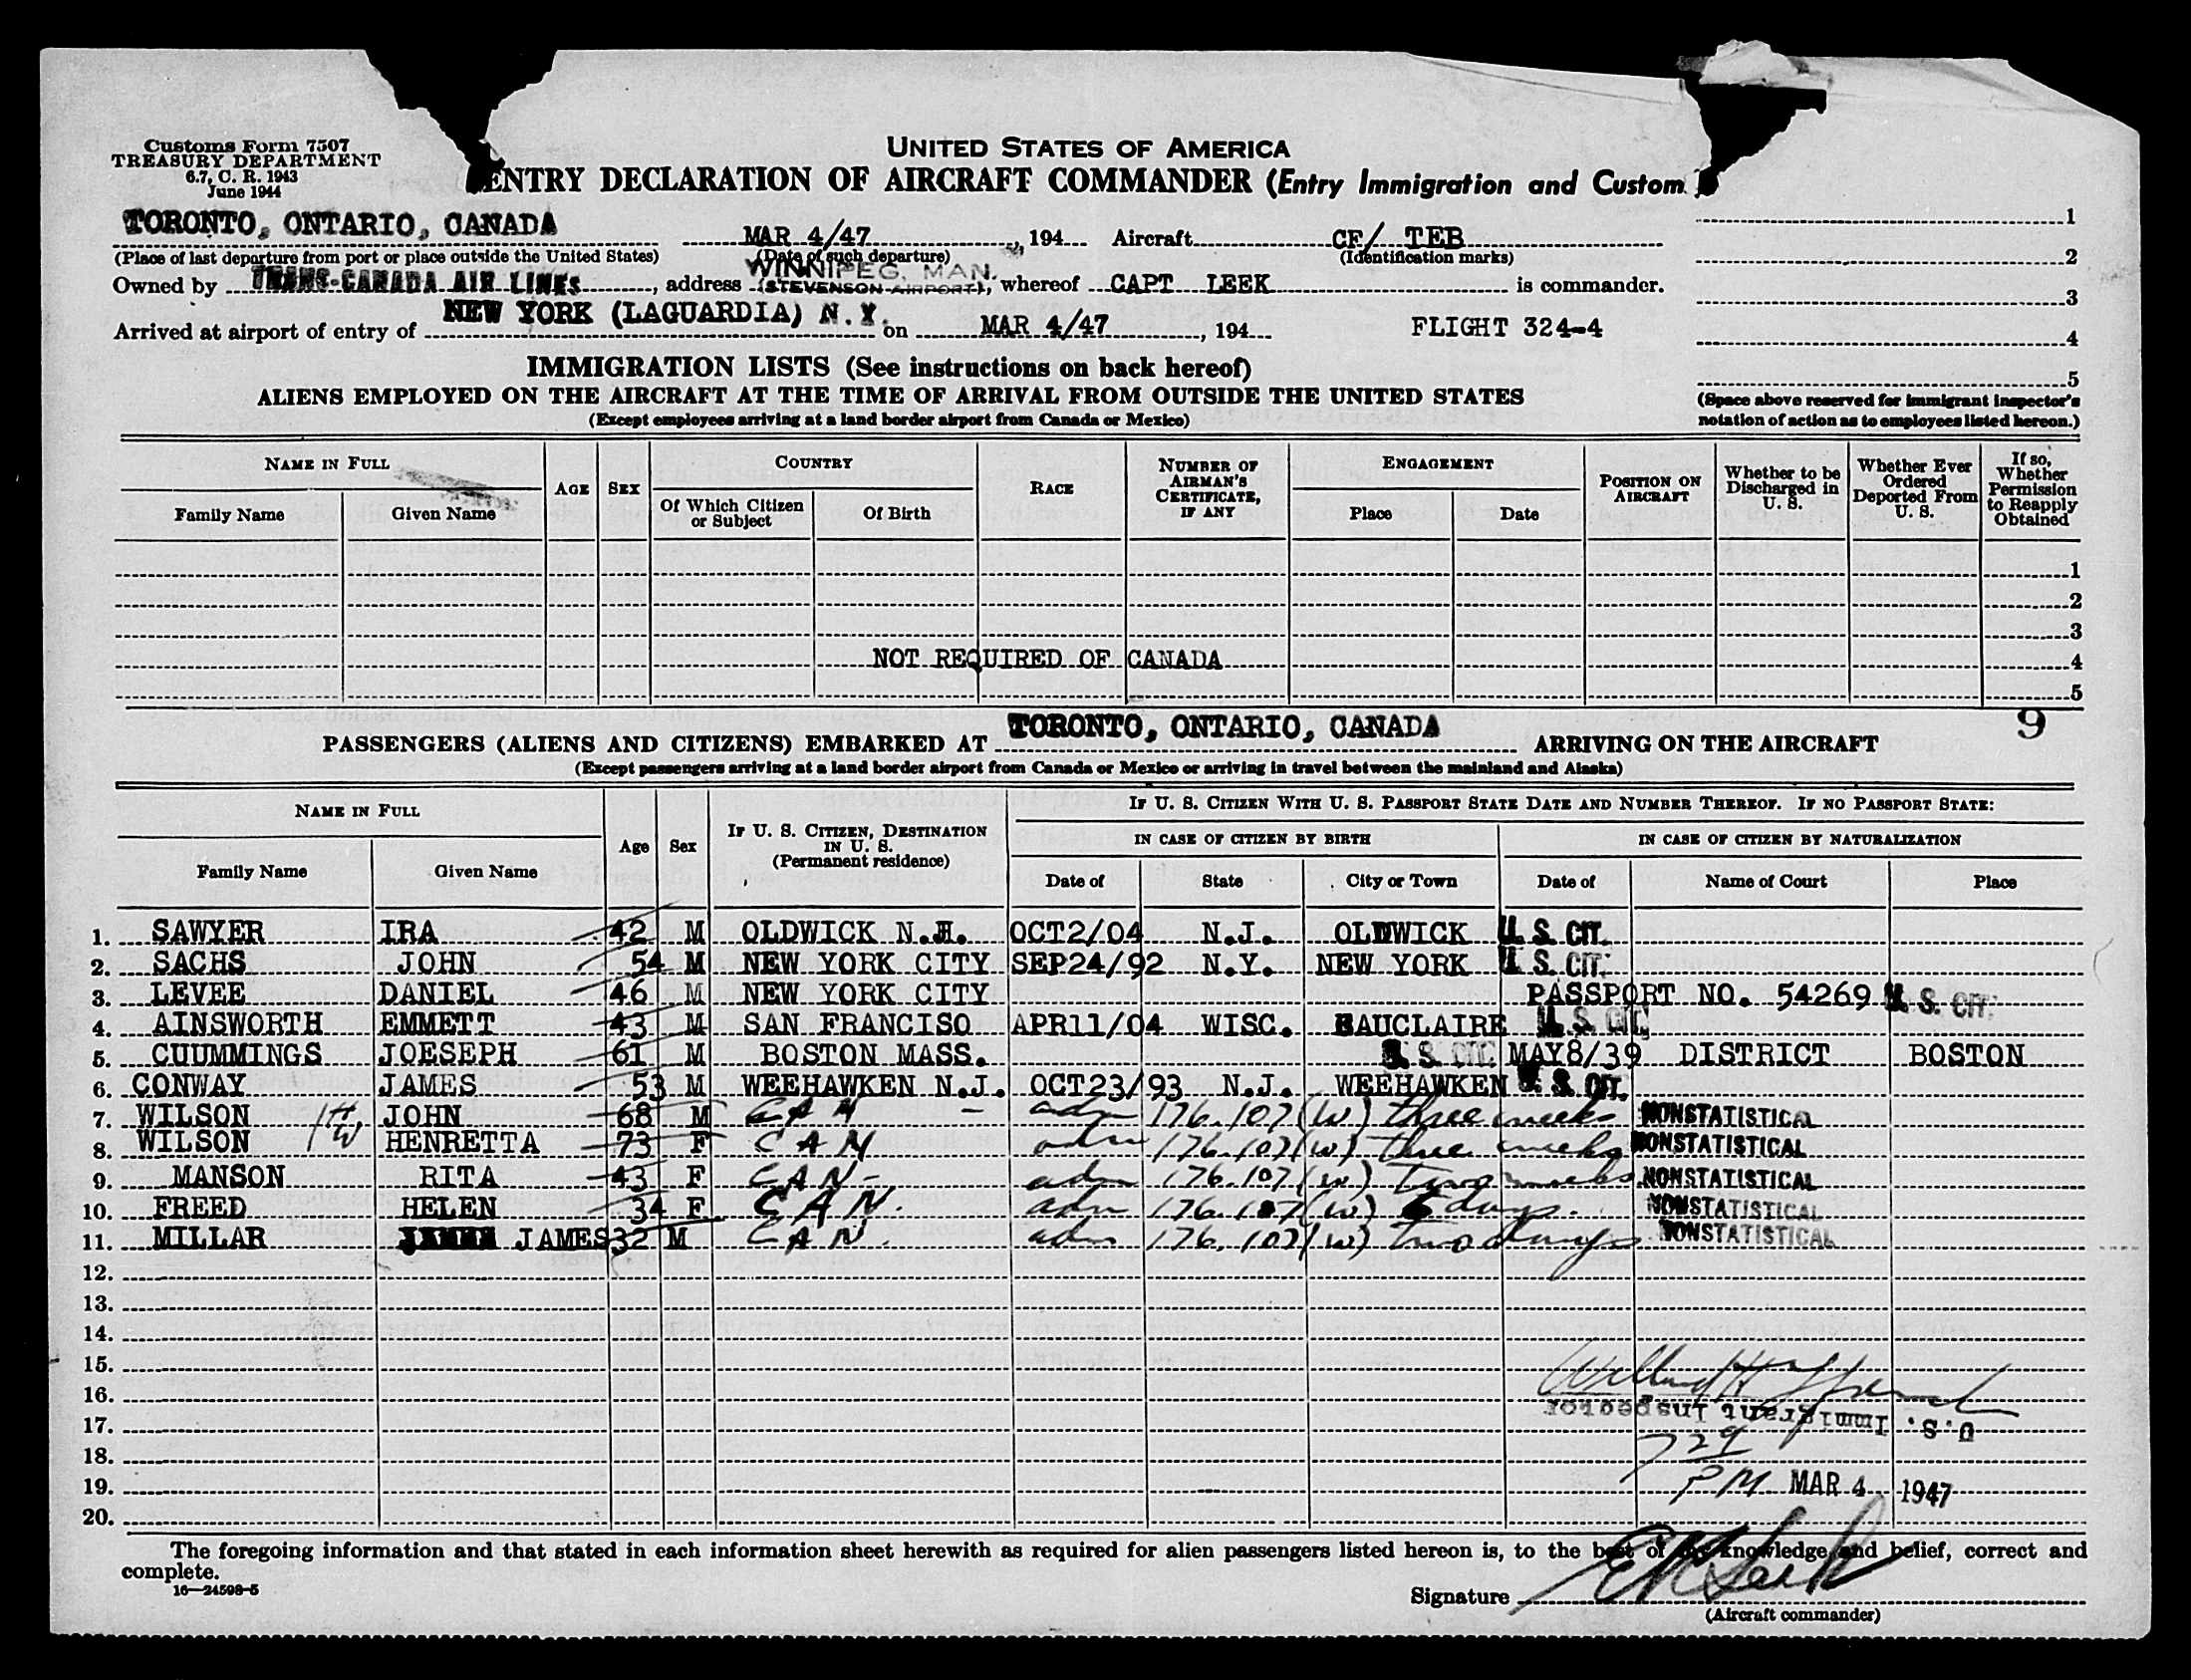 Customs Form 7507
TREASURY DEPARTMENT
6.7, C. R. 1943
June 1944
UNITED STATES OF AMERICA
ENTRY DECLARATION OF AIRCRAFT COMMANDER (Entry Immigration and Custom
TORONTO, ONTARIO, CANADA MAR 4/47, 194 Aircraft CF/ TEB
(Place of last departure from port or place outside the United States) (Date of such departure) (Identification marks)
WINNIPEG, MAN.
Owned by TRANS-CANADA AIR LINES, address (STEVENSON AIRPORT), whereof CAPT LEEK is commander.
Arrived at airport of entry of NEW YORK (LAGUARDIA) N.Y. on MAR 4/47, 194 FLIGHT 324-4
1
2
3
4
5
(Space above reserved for immigrant inspector's
notation of action as to employees listed hereon.)
IMMIGRATION LISTS (See instructions on back hereof)
ALIENS EMPLOYED ON THE AIRCRAFT AT THE TIME OF ARRIVAL FROM OUTSIDE THE UNITED STATES
(Except employees arriving at a land border airport from Canada or Mexico)
NAME IN FULL AGE SEX COUNTRY RACE NUMBER OF AIRMAN'S CERTIFICATE, IF ANY ENGAGEMENT POSITION ON AIRCRAFT Whether to be Discharged in U. S. Whether Ever Ordered Deported From U. S. If so, Whether Permission to Reapply Obtained
Family Name Given Name Of Which Citizen or Subject Of Birth Place Date
1
2
3
NOT REQUIRED OF CANADA 4
5
9
PASSENGERS (ALIENS AND CITIZENS) EMBARKED AT TORONTO, ONTARIO, CANADA ARRIVING ON THE AIRCRAFT
(Except passengers arriving at a land border airport from Canada or Mexico or arriving in travel between the mainland and Alaska)
NAME IN FULL Age Sex IF U. S. CITIZEN, DESTINATION IN U. S. (Permanent residence) IF U. S. CITIZEN WITH U. S. PASSPORT STATE DATE AND NUMBER THEREOF. IF NO PASSPORT STATE:
IN CASE OF CITIZEN BY BIRTH IN CASE OF CITIZEN BY NATURALIZATION
Family Name Given Name Date of State City or Town Date of Name of Court Place
1. SAWYER IRA 42 M OLDWICK N.H. OCT2/04 N.J. OLDWICK U. S. CIT.
2. SACHS JOHN 54 M NEW YORK CITY SEP24/92 N.Y. NEW YORK U. S. CIT.
3. LEVEE DANIEL 46 M NEW YORK CITY PASSPORT NO. 54269 U. S. CIT.
4. AINSWORTH EMMETT 43 M SAN FRANCISO APR11/04 WISC. EAUCLAIRE U. S. CIT.
5. CUUMMINGS JOESEPH 61 M BOSTON MASS. U. S. CIT. MAY8/39 DISTRICT BOSTON
6. CONWAY JAMES 53 M WEEHAWKEN N.J. OCT23/93 N.J. WEEHAWKEN U. S. CIT.
7. WILSON H JOHN 68 M CAN - adm 176.107(w) three weeks NONSTATISTICAL
8. WILSON W HENRETTA 73 F CAN adm 176.107(w) three weeks NONSTATISTICAL
9. MANSON RITA 43 F CAN- adm 176.107(w) Two weeks NONSTATISTICAL
10. FREED HELEN 34 F CAN. adm 176.107(w) 6 days. NONSTATISTICAL
11. MILLAR JAMES 32 M CAN. adm 176.107(w) Two days NONSTATISTICAL
12.
13.
14.
15.
16.
17. U.S. Immigrant Inspector
18. 7 29
19. PM MAR 4 1947
20.
The foregoing information and that stated in each information sheet herewith as required for alien passengers listed hereon is, to the best of knowledge and belief, correct and
complete.
16—24598-5
Signature
(Aircraft commander)